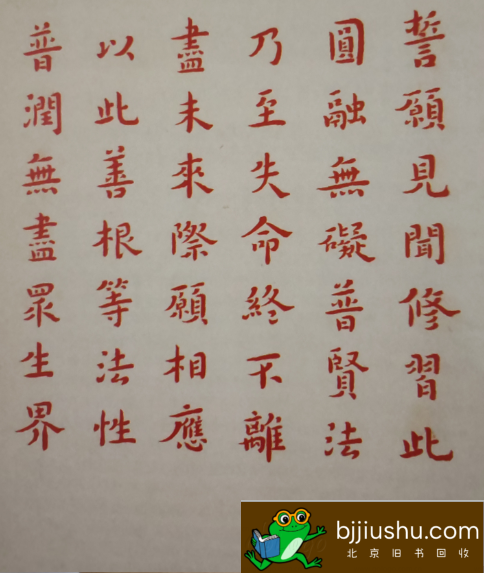 誓願見聞修習此
圓融無礙普賢法
乃至失命終不離
盡未來際願相應
以此善根等法性
普潤無盡眾生界
bjjiushu.com
北京旧书回收